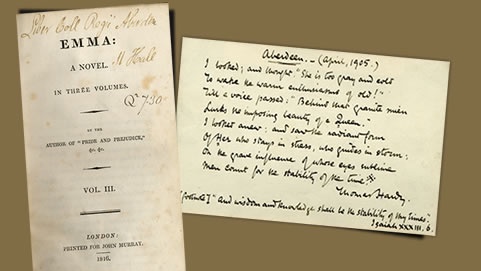 Liber Coll. Regii Aberdon
EMMA:
A NOVEL.
Hall
IN THREE VOLUMES.
730
BY THE
AUTHOR OF “PRIDE AND PREJUDICE,”
&c. &c.
VOL. III.
LONDON:
PRINTED FOR JOHN MURRAY.
1816.
Aberdeen. – (April, 1905.)
I looked; and thought "She is too gray and cold
To wake the warm enthusiasms of old!"
Till a voice passed: "Behind that granite mien
Lurks the imposing beauty of a Queen."
I looked anew; and saw the radiant form
Of Her who stays in stress, who guides in storm;
On the grave influence of whose eyes sublime
Men count for the stability of the time.*
Thomas Hardy.
[footnote] *"And wisdom and knowledge shall be the stability of thy times".
Isaiah XXXIII. 6.